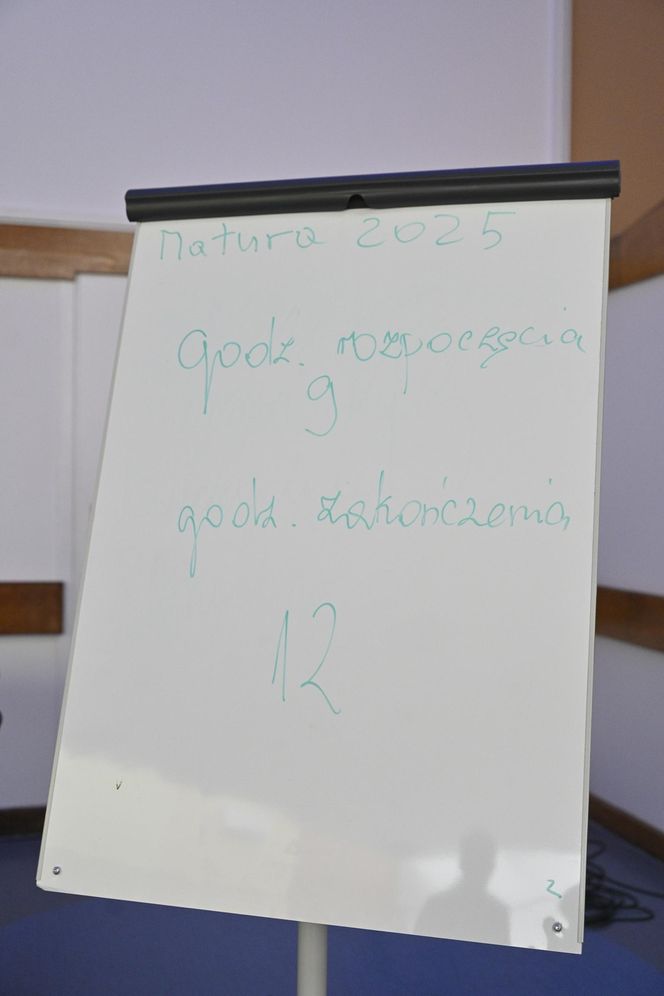 Matura 2025
godz. rozpoczęcia
9
godz. zakończenia
12
2